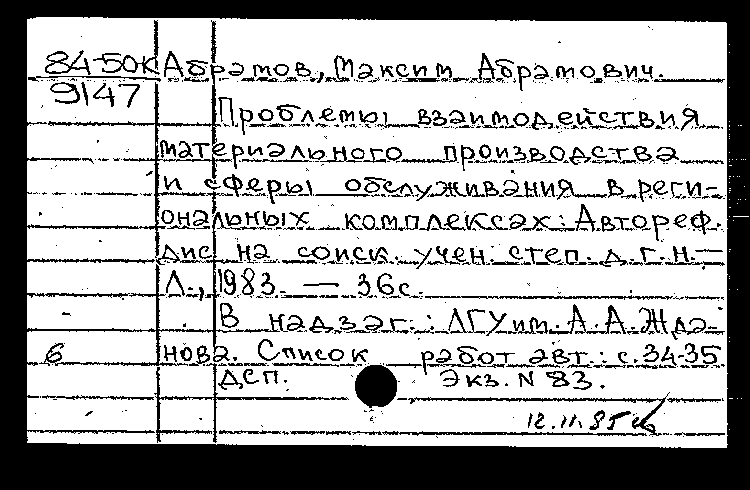 84-50К Абрамов, Максим Абрамович.
9147
Проблемы взаимодействия
материального производства
и сферы обслуживания в реги-
ональных комплексах: Автореф.
дис на соиск. учен. степ. д.г.н.—
Л., 1983. — 36с.
В надзаг.: ЛГУ им. А.А. Жда-
6 нова. Список работ авт.: с.34-35
ДСП. Экз. N 83.
12.11.85